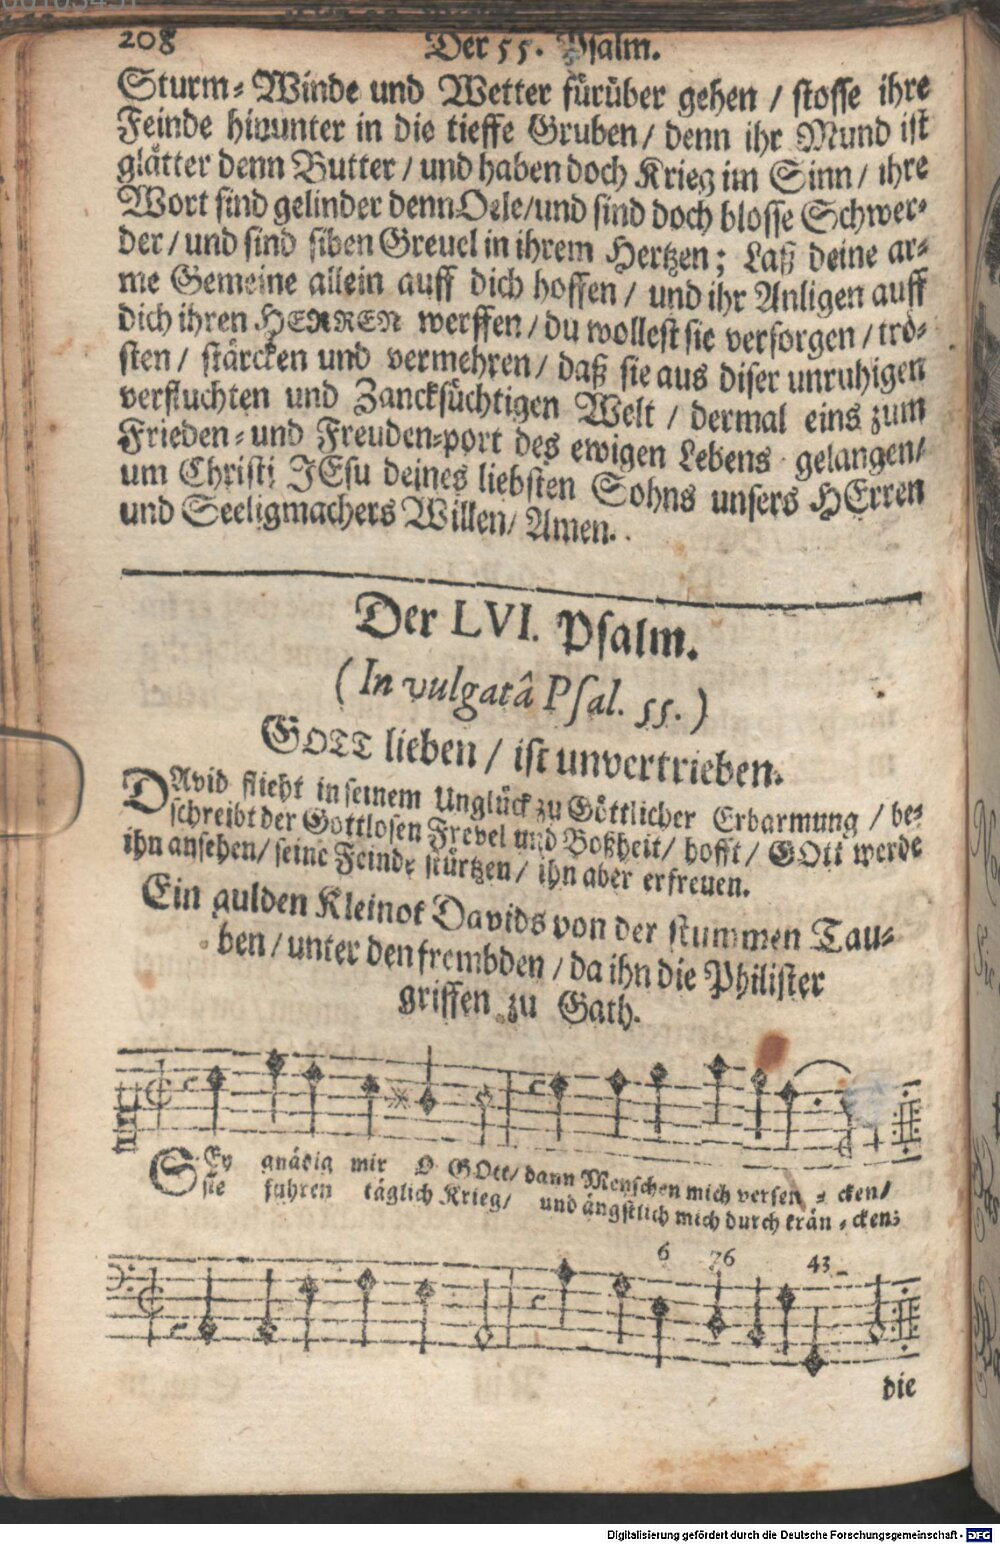 208
Der 55. Psalm.
Sturm-Winde und Wetter fürüber gehen / stosse ihre
Feinde hinunter in die tieffe Gruben / denn ihr Mund ist
glätter denn Butter / und haben doch Krieg im Sinn / ihre
Wort sind gelinder denn Oele / und sind doch blosse Schwer-
der / und sind siben Greuel in ihrem Hertzen; Laß deine ar-
me Gemeine allein auff dich hoffen / und ihr Anligen auff
dich ihren HERREN werffen / du wollest sie versorgen / trö-
sten / stärcken und vermehren / daß sie aus diser unruhigen
verfluchten und Zancksüchtigen Welt / dermal eins zum
Frieden- und Freuden-port des ewigen Lebens gelangen /
um Christi JEsu deines liebsten Sohns unsers HErren
und Seeligmachers Willen / Amen.
Der LVI. Psalm.
(In vulgatâ Psal. 55.)
GOTT lieben / ist unvertrieben.
DAvid flieht in seinem Unglück zu Göttlicher Erbarmung / be-
schreibt der Gottlosen Frevel und Boßheit / hofft / GOtt werde
ihn ansehen / seine Feinde stürtzen / ihn aber erfreuen.
Ein gulden Kleinot Davids von der stummen Tau-
ben / unter den frembden / da ihn die Philister
griffen zu Gath.
SEy gnädig mir O GOtt / dann Menschen mich versen - cken /
sie führen täglich Krieg / und ängstlich mich durch krän - cken;
6 76 43
die
Digitalisierung gefördert durch die Deutsche Forschungsgemeinschaft - DFG